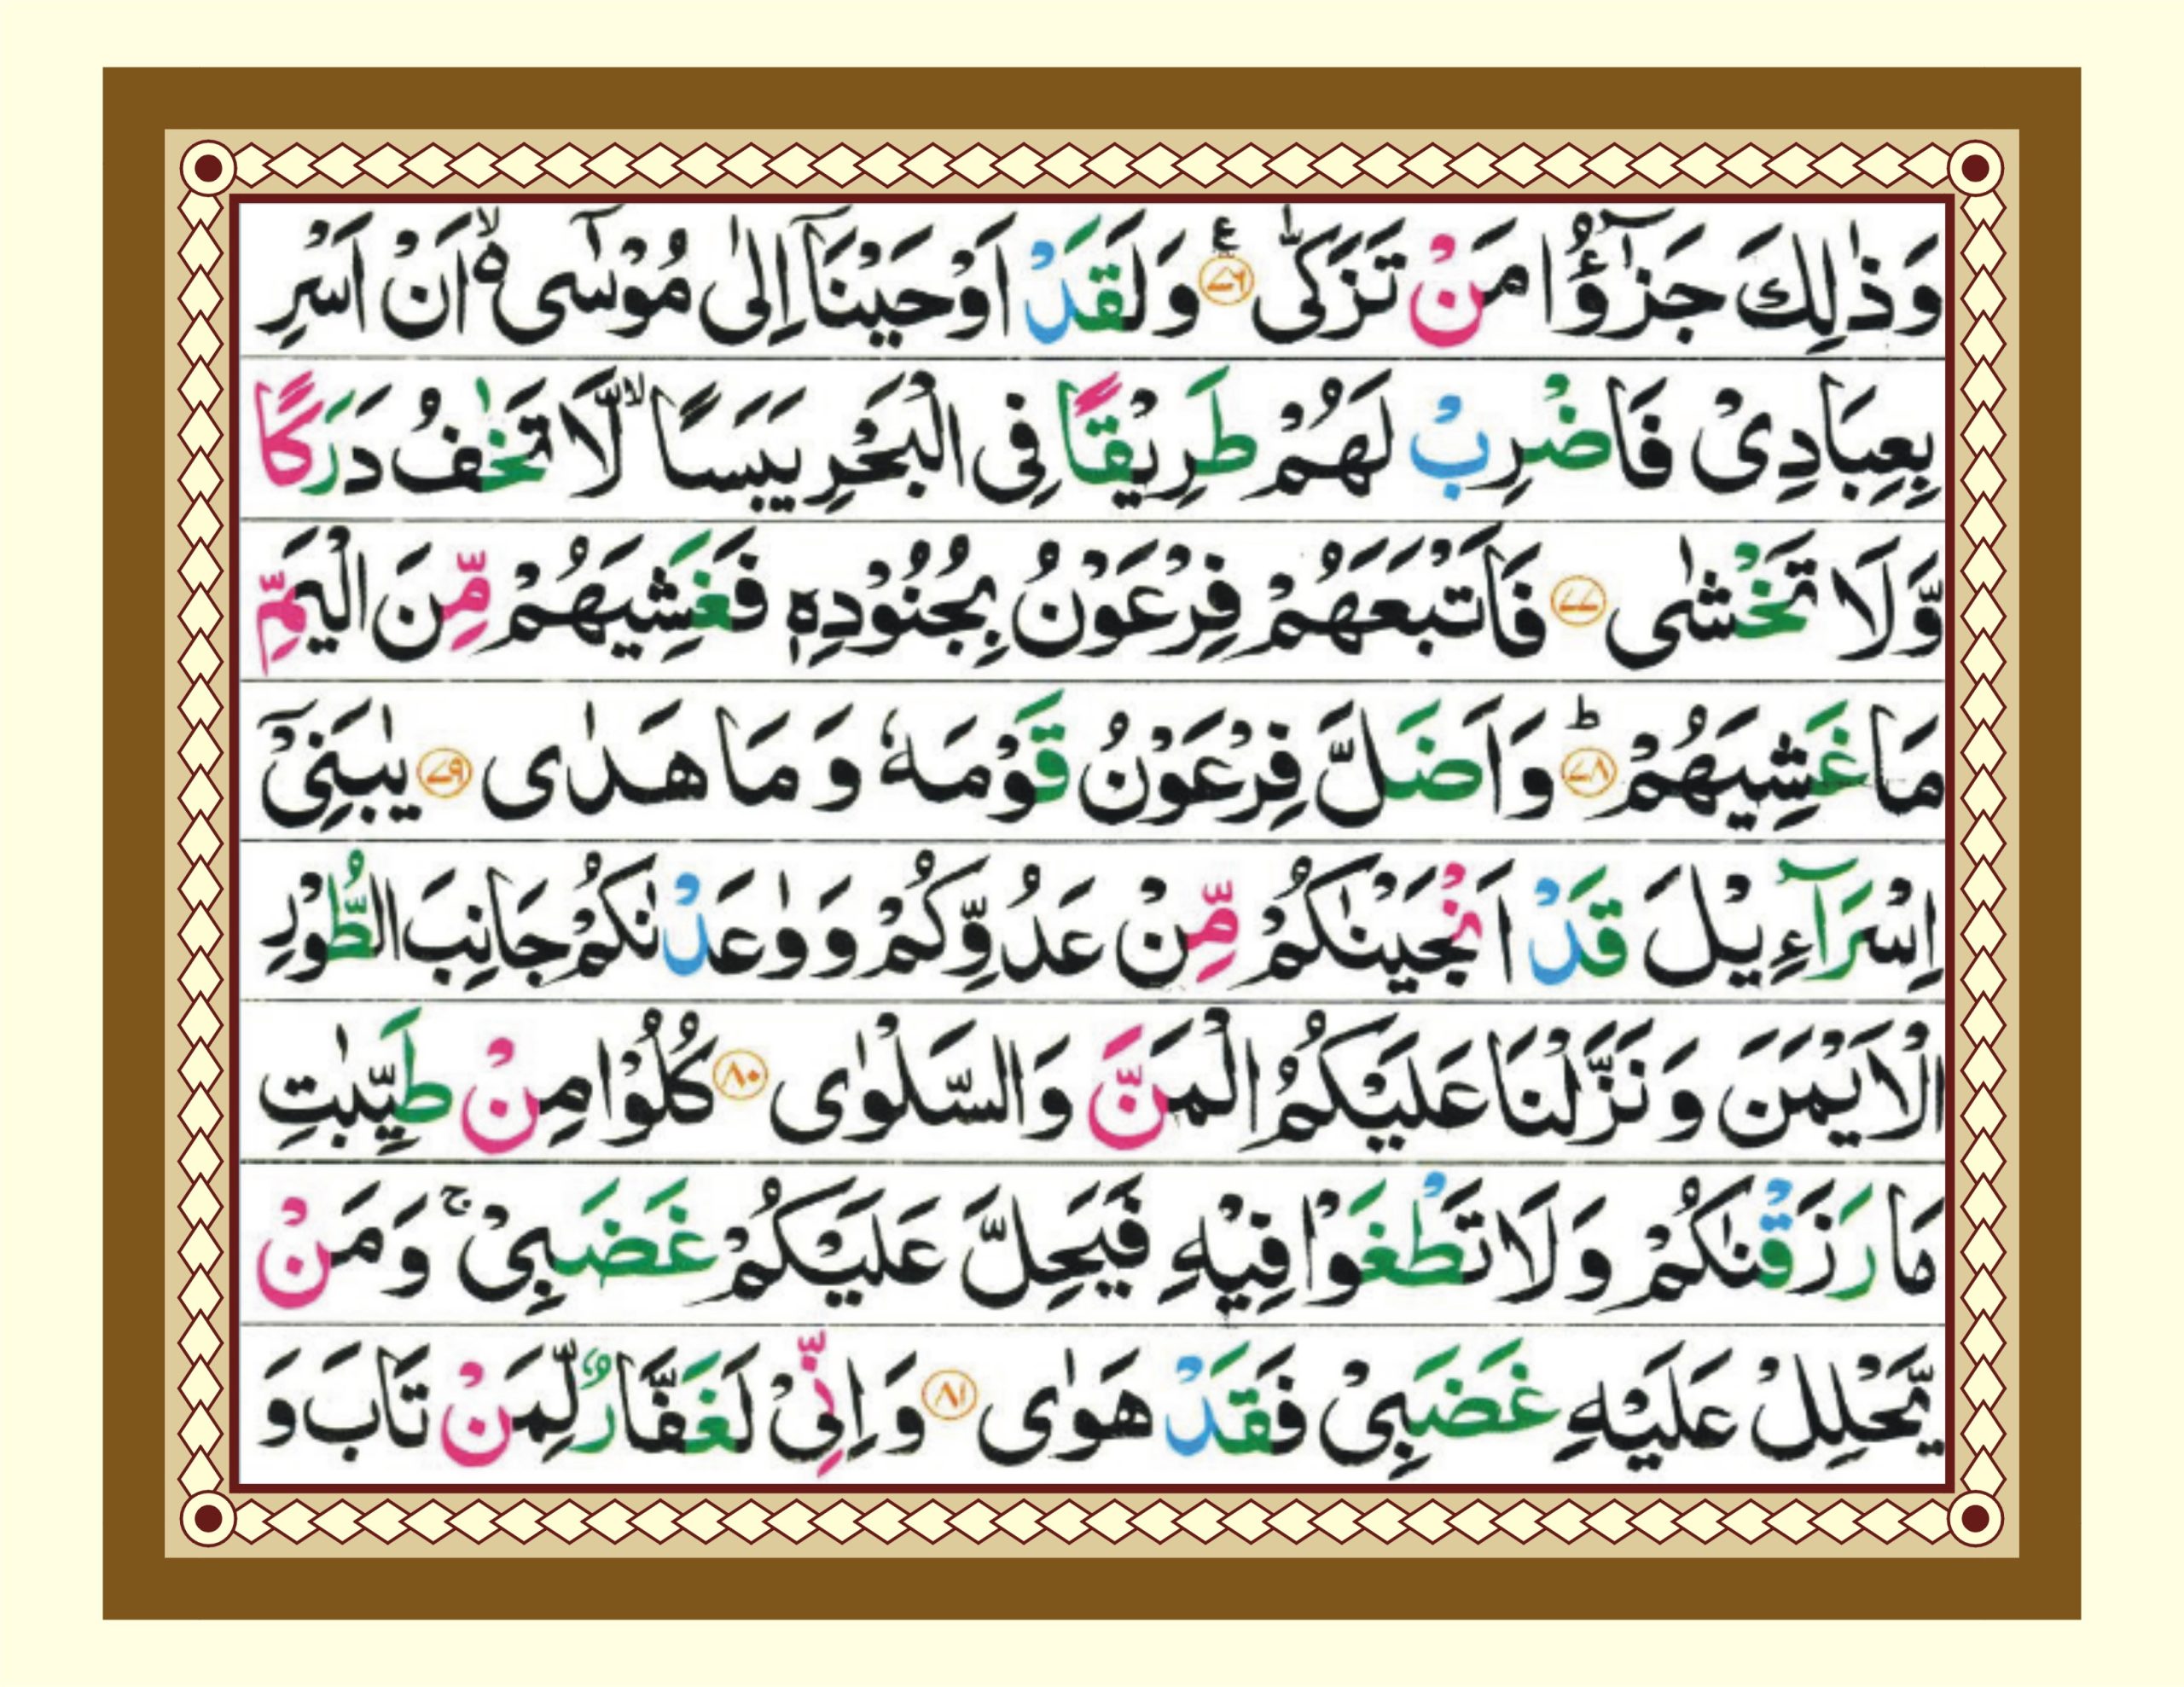 وَذٰلِكَ جَزٰٓؤُا مَنْ تَزَكّٰى ۧ﴿۷۶﴾ وَلَقَدْ اَوْحَيْنَاۤ اِلٰى مُوْسٰۤى ۙ۬ اَنْ اَسْرِ
بِعِبَادِىْ فَاضْرِبْ لَهُمْ طَرِيْقًا فِى الْبَحْرِ يَبَسًا ۙ لَّا تَخٰفُ دَرَكًا
وَّلَا تَخْشٰى ﴿۷۷﴾ فَاَتْبَعَهُمْ فِرْعَوْنُ بِجُنُوْدِهٖ فَغَشِيَهُمْ مِّنَ الْيَمِّ
مَا غَشِيَهُمْ ؕ﴿۷۸﴾ وَاَضَلَّ فِرْعَوْنُ قَوْمَهٗ وَمَا هَدٰى ﴿۷۹﴾ يٰبَنِىْۤ
اِسْرَآءِيْلَ قَدْ اَنْجَيْنٰكُمْ مِّنْ عَدُوِّكُمْ وَوٰعَدْنٰكُمْ جَانِبَ الطُّوْرِ
الْاَيْمَنَ وَنَزَّلْنَا عَلَيْكُمُ الْمَنَّ وَالسَّلْوٰى ﴿۸۰﴾ كُلُوْا مِنْ طَيِّبٰتِ
مَا رَزَقْنٰكُمْ وَلَا تَطْغَوْا فِيْهِ فَيَحِلَّ عَلَيْكُمْ غَضَبِىْ ۚ وَمَنْ
يَّحْلِلْ عَلَيْهِ غَضَبِىْ فَقَدْ هَوٰى ﴿۸۱﴾ وَاِنِّىْ لَغَفَّارٌ لِّمَنْ تَابَ وَ